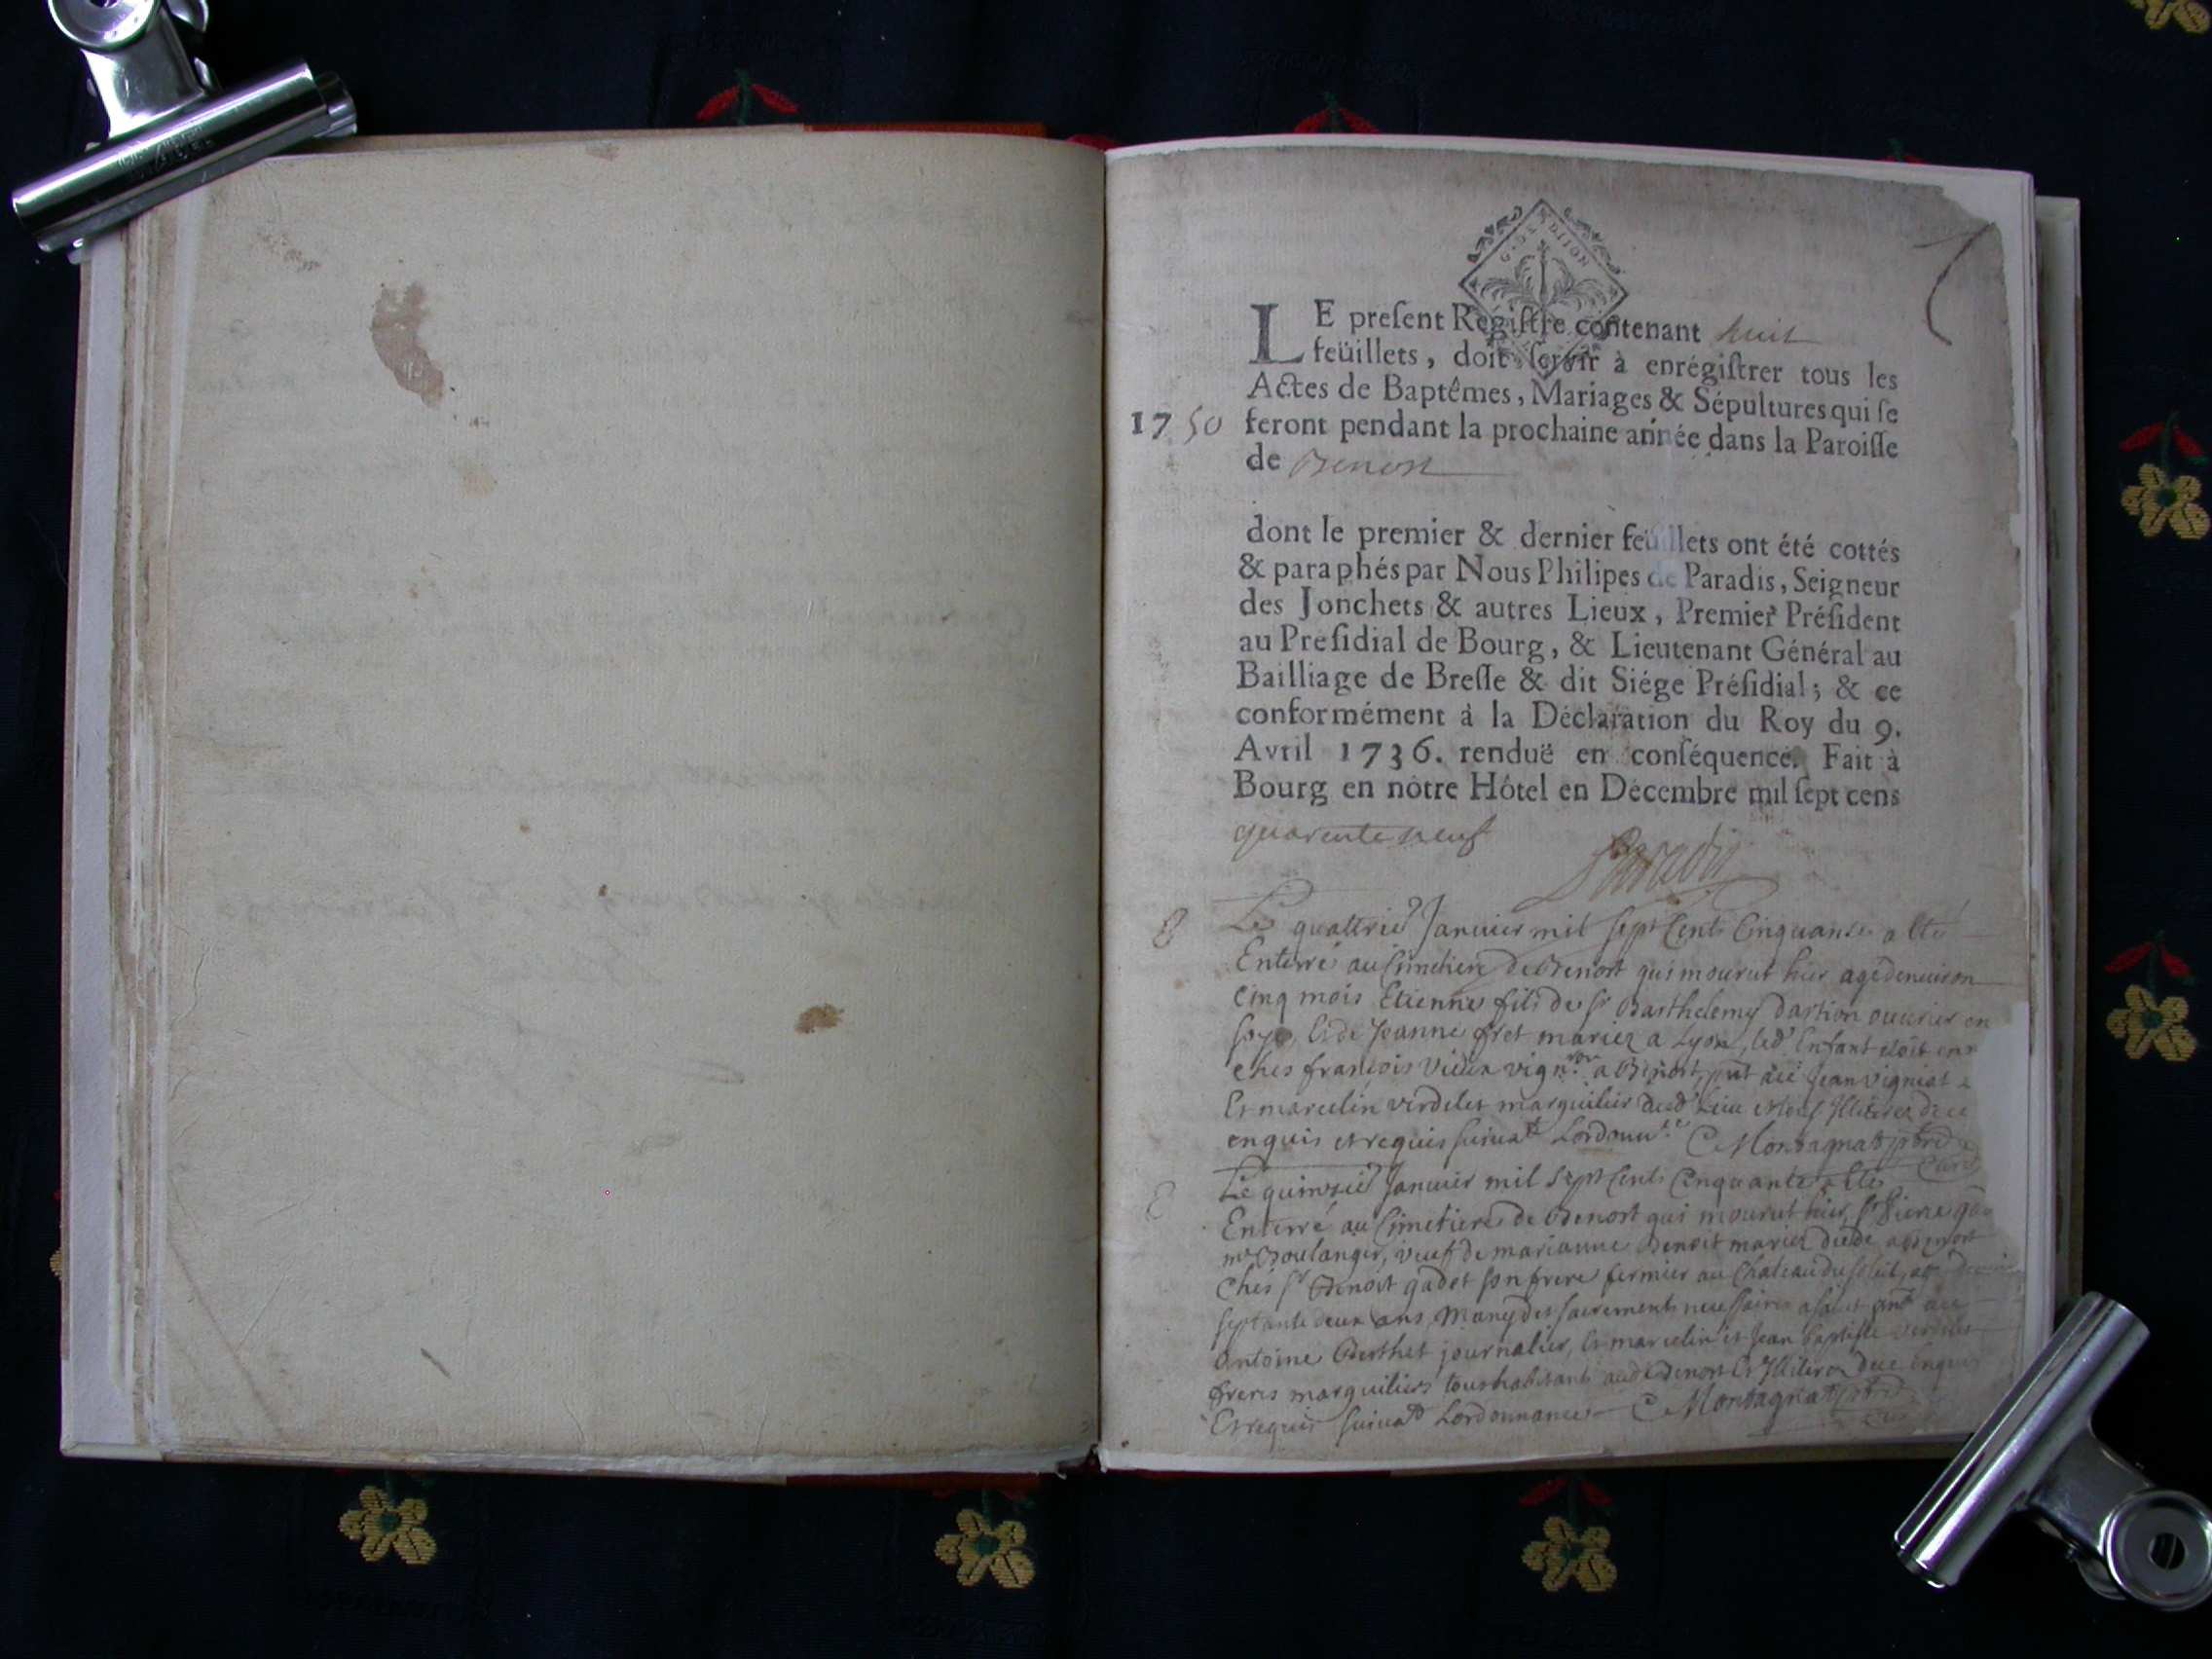 G. DE DIJON
LE preſent Regiſtre contenant huit
feüillets, doit ſervir à enrégiſtrer tous les
Actes de Baptêmes, Mariages & Sépultures qui ſe
1750 feront pendant la prochaine année dans la Paroiſſe
de Benost
dont le premier & dernier feüillets ont été cottés
& paraphés par Nous Philipes de Paradis, Seigneur
des Jonchets & autres Lieux, Premier Préſident
au Preſidial de Bourg, & Lieutenant Général au
Bailliage de Breſſe & dit Siége Préſidial; & ce
conformément à la Déclaration du Roy du 9.
Avril 1736. renduë en conſéquence. Fait à
Bourg en nôtre Hôtel en Décembre mil ſept cens
quarente neuf
Paradis
Le quattrie Janvier mil sept Cents Cinquante a Ete
Enterré au Cimetiere de Benost qui mourut hier agé denviron
Cinq mois Etienne fils de Sr Barthelemy Dartion ouvrier en
soye, et de Jeanne fret mariez a Lyon, led Enfant etoit en
ches françois Vieux vign.ron a Benost, Jean Vigniat
Et marcelin verdelet marguilier dud Lieu Illiterez de ce
enquis et requis suivat Lordonn.ce C Montagnat ptre
Curé
Le quinzie Janvier mil sept Cents Cinquante a Ete
Enterré au Cimetiere de Benost qui mourut hier, Sr Pierre
me Boulanger, veuf de marianne Benoit
Chés Sr Benoit gadot son frere fermier au Chateau du soleil,
septante deux ans, Muny des sacrements necessaires
Antoine Berthet journalier, Et marcelin et Jean Baptiste verdelet
freres marguiliers tous habitants aud Benost Et Illiterez de ce Enquis
Et requis suivat Lordonnance C Montagnat ptre